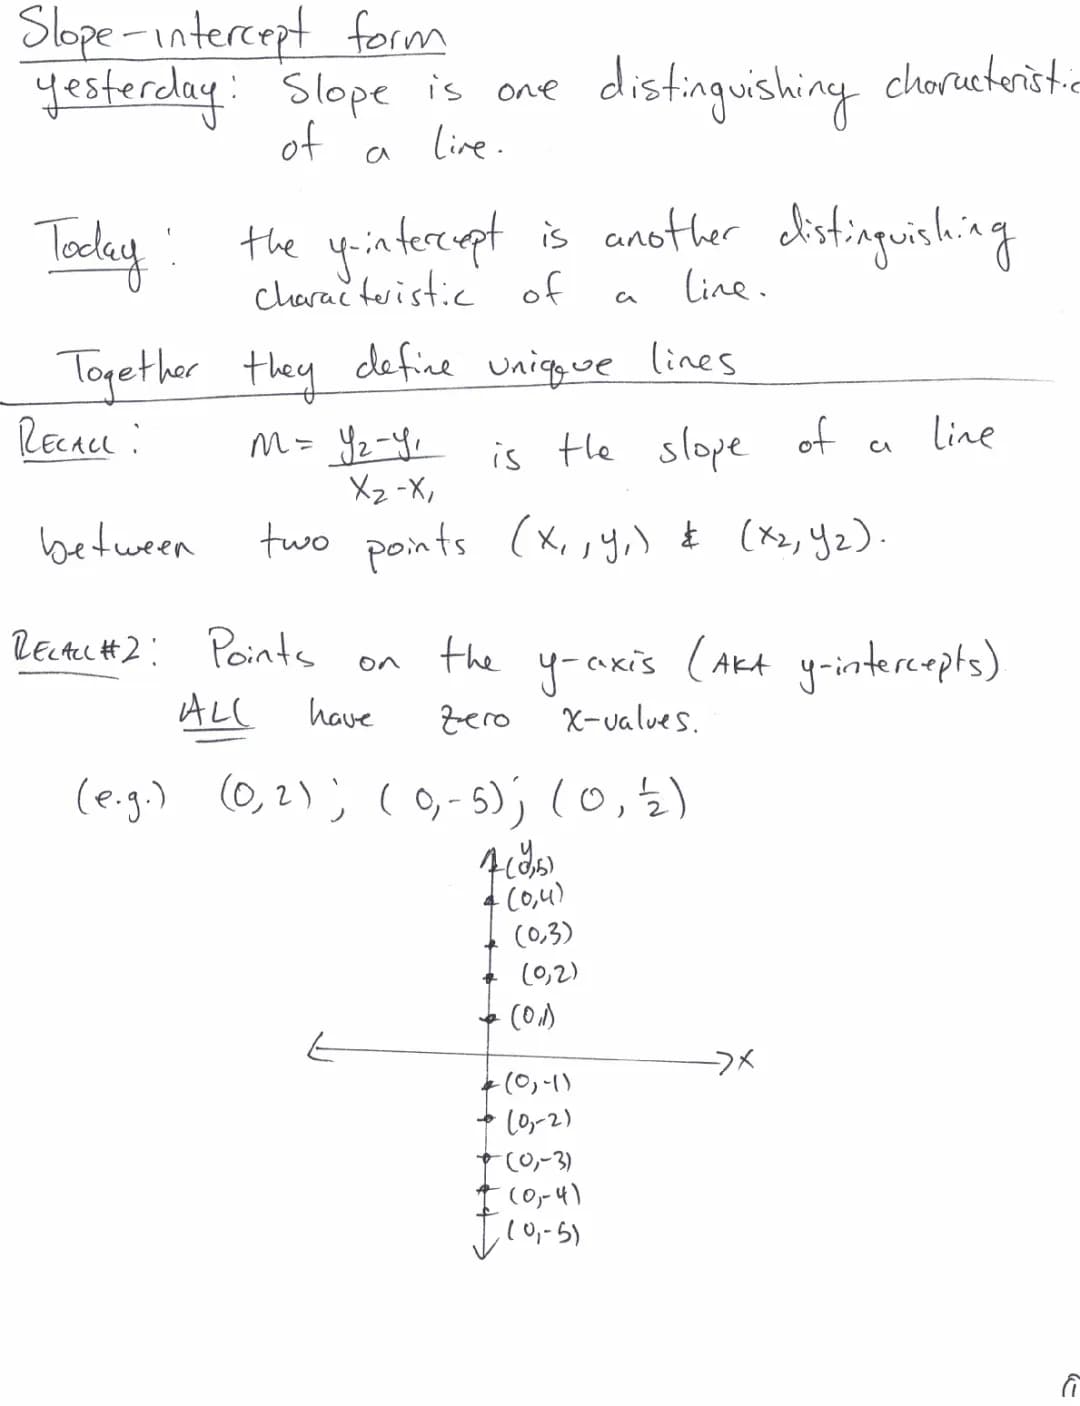 Slope-intercept form
yesterday: Slope is one distinguishing characteristic
of a line.
Today: the y-intercept is another distinguishing
characteristic of a line.
Together they define uniqque lines
RECALL: m = y₂-y₁ is the slope of a line
x₂-x₁
between two points (x₁, y₁) & (x₂, y₂).
RECALL #2: Points on the y-axis (AKA y-intercepts)
ALL have zero x-values.
(e.g.) (0, 2); (0, -5); (0, ½)
y
(0,5)
(0,4)
(0,3)
(0,2)
(0,1)
x
(0,-1)
(0,-2)
(0,-3)
(0,-4)
(0,-5)